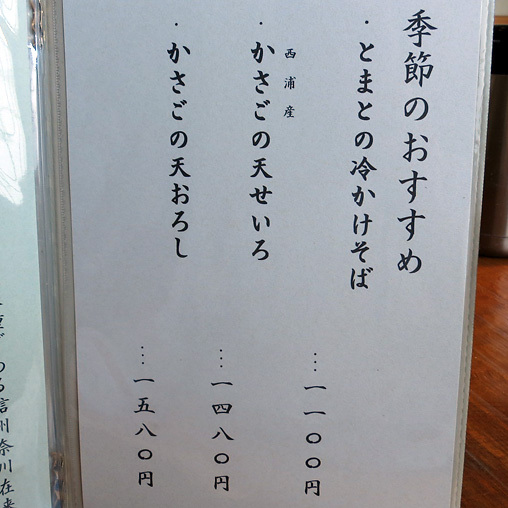 季節のおすすめ
・とまとの冷かけそば
…一一〇〇円
西浦産
・かさごの天せいろ
…一四八〇円
・かさごの天おろし
…一五八〇円
信州奈川在来